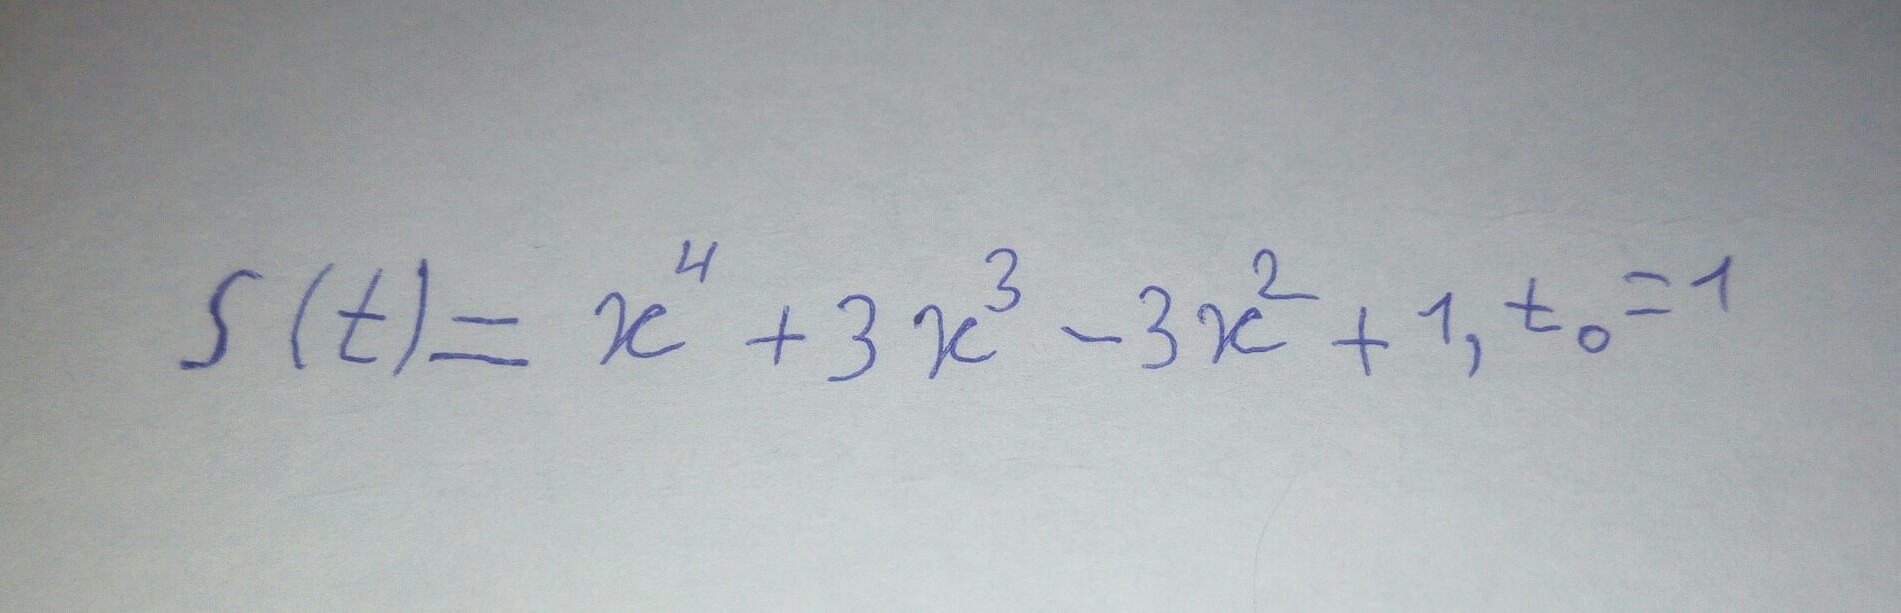 S(t) = x⁴ + 3x³ - 3x² + 1, t₀ = 1